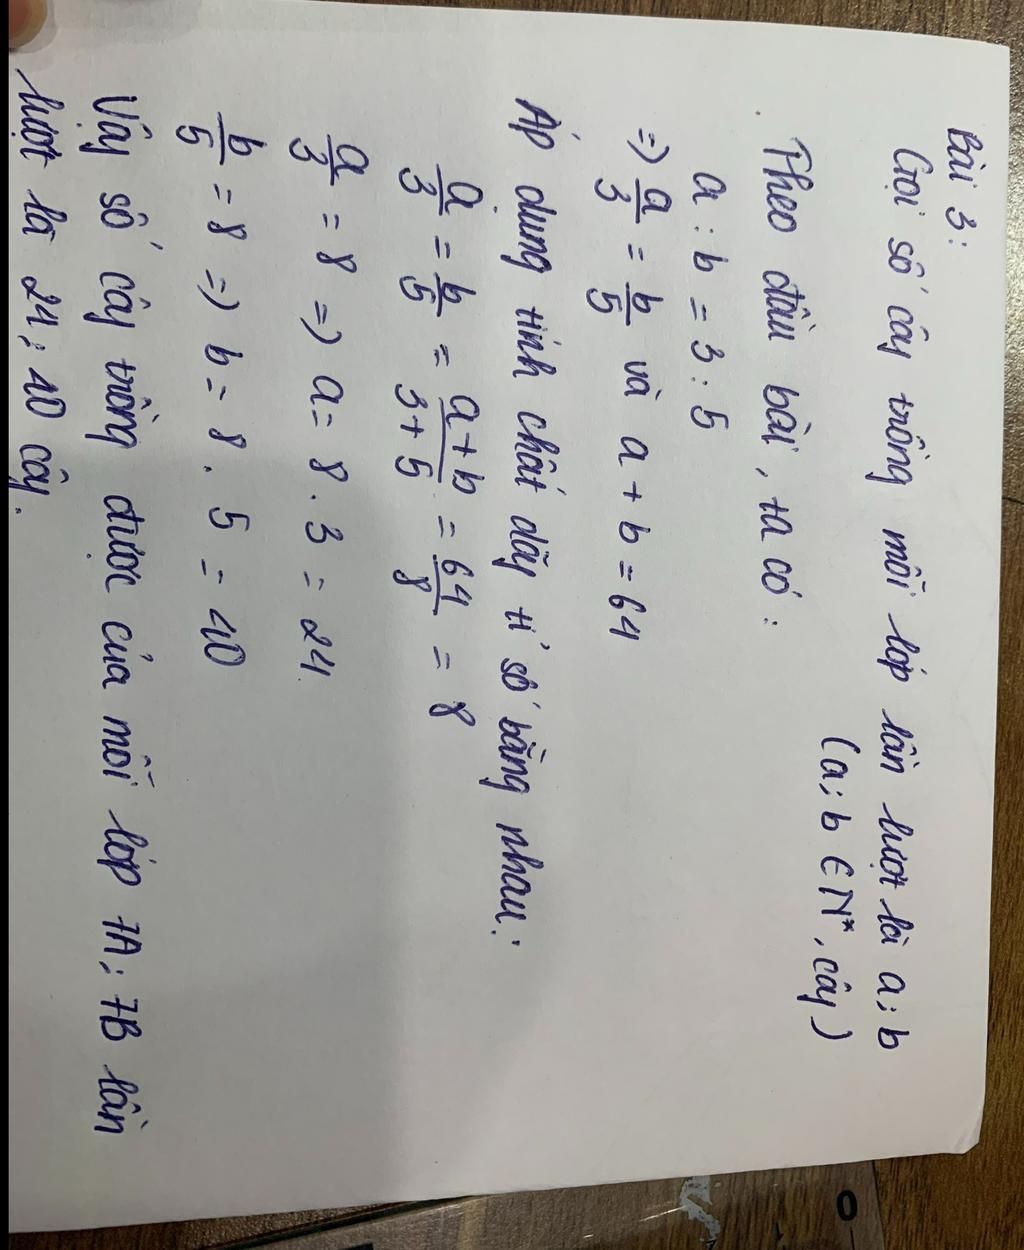 Bài 3:
Gọi số cây trồng mỗi lớp lần lượt là a; b
(a; b ∈ N*, cây)
Theo đầu bài, ta có:
a : b = 3 : 5
=> a/3 = b/5 và a + b = 64
Áp dụng tính chất dãy tỉ số bằng nhau:
a/3 = b/5 = (a+b)/(3+5) = 64/8 = 8
a/3 = 8 => a = 8 . 3 = 24
b/5 = 8 => b = 8 . 5 = 40
Vậy số cây trồng được của mỗi lớp 7A; 7B lần
lượt là 24; 40 cây.
0